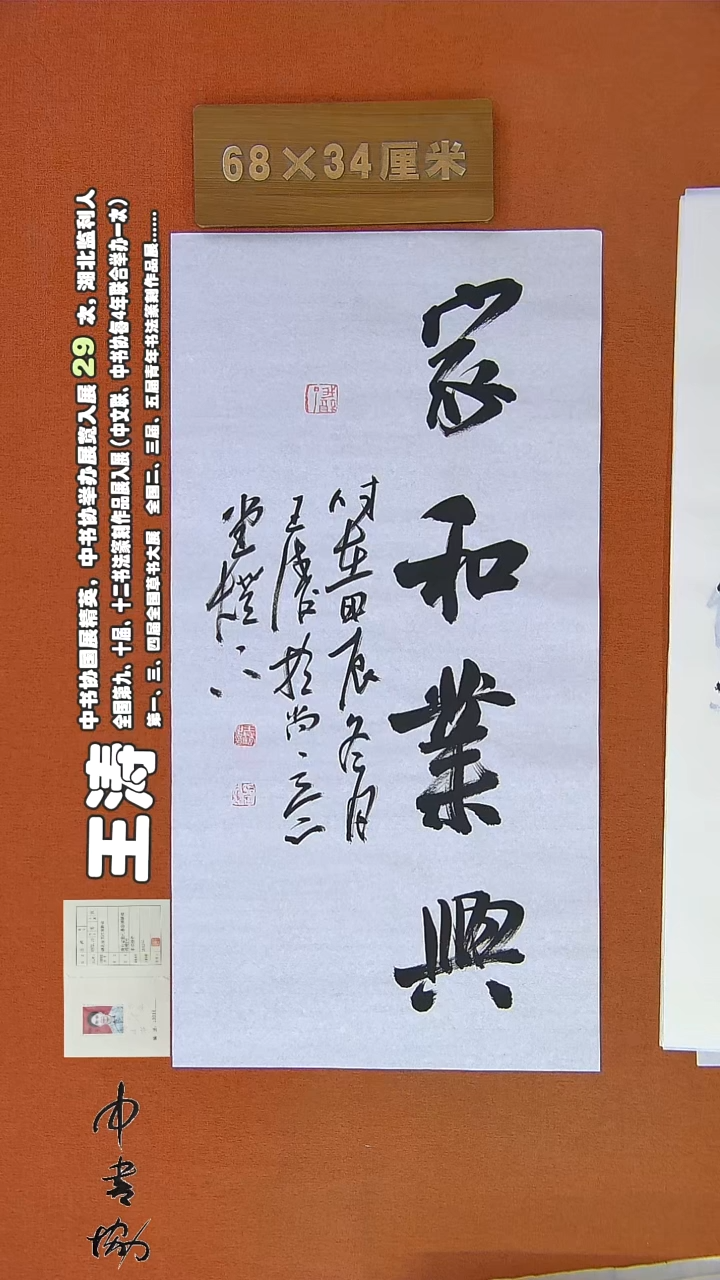 68×34厘米
家和業興
时在甲辰冬月
王涛於尚
堂燈下
中书协国展精英，中书协举办展览入展 29 次，湖北监利人
全国第九、十届、十二书法篆刻作品展入展（中文联、中书协每4年联合举办一次）
第一、三、四届全国草书大展 全国二、三届、五届青年书法篆刻作品展……
王涛
中书协